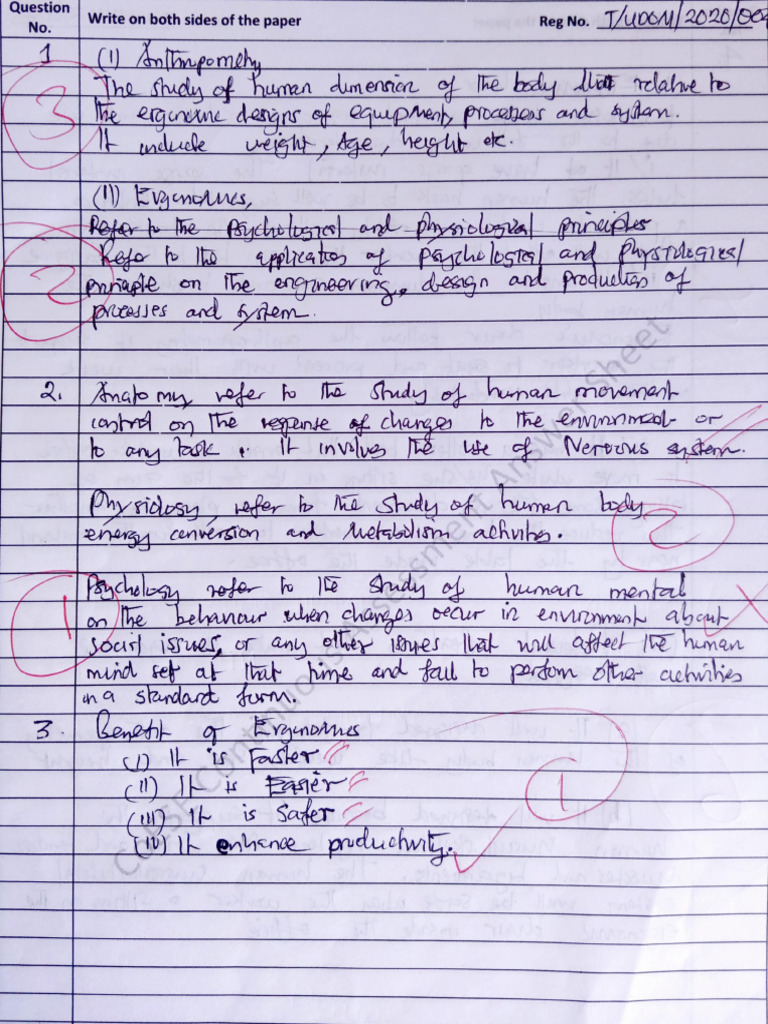 Question No.
Write on both sides of the paper
Reg No. T/UDOM/2020/004
1 (1) Anthropometry
The study of human dimension of the body that relative to
the ergonomic designs of equipment, processes and system.
It include weight, Age, height etc.
(11) Ergonomics,
Refer to the Psychological and physiological principles
Refer to the application of psychological and physiological
principle on the engineering, design and production of
processes and system.
2. Anatomy refer to the study of human movement
control on the response of changes to the environment or
to any task. It involves the use of Nervous system.
Physiology refer to the study of human body
energy conversion and Metabolism activities.
Psychology refer to the study of human mental
on the behaviour when changes occur in environment about
social issues, or any other issues that will affect the human
mind set at that time and fail to perform other activities
in a standard form.
3. Benefit of Ergonomics
(i) It is Faster
(ii) It is Easier
(iii) It is Safer
(iv) It enhance productivity.
3
2
2
1
1
Assessment Answer Sheet